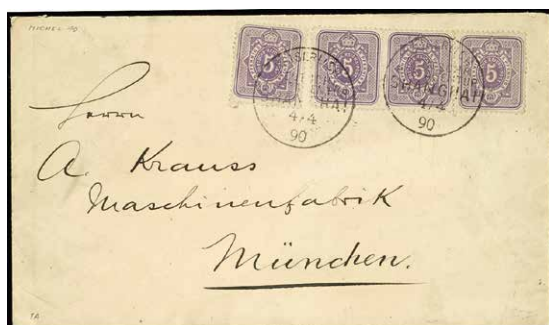 MICHEL 40
5 5 5 5
SHANGHAI
4/4
90
SHANGHAI
4/4
90
Herrn
A. Krauss
Maschinenfabrik
München.